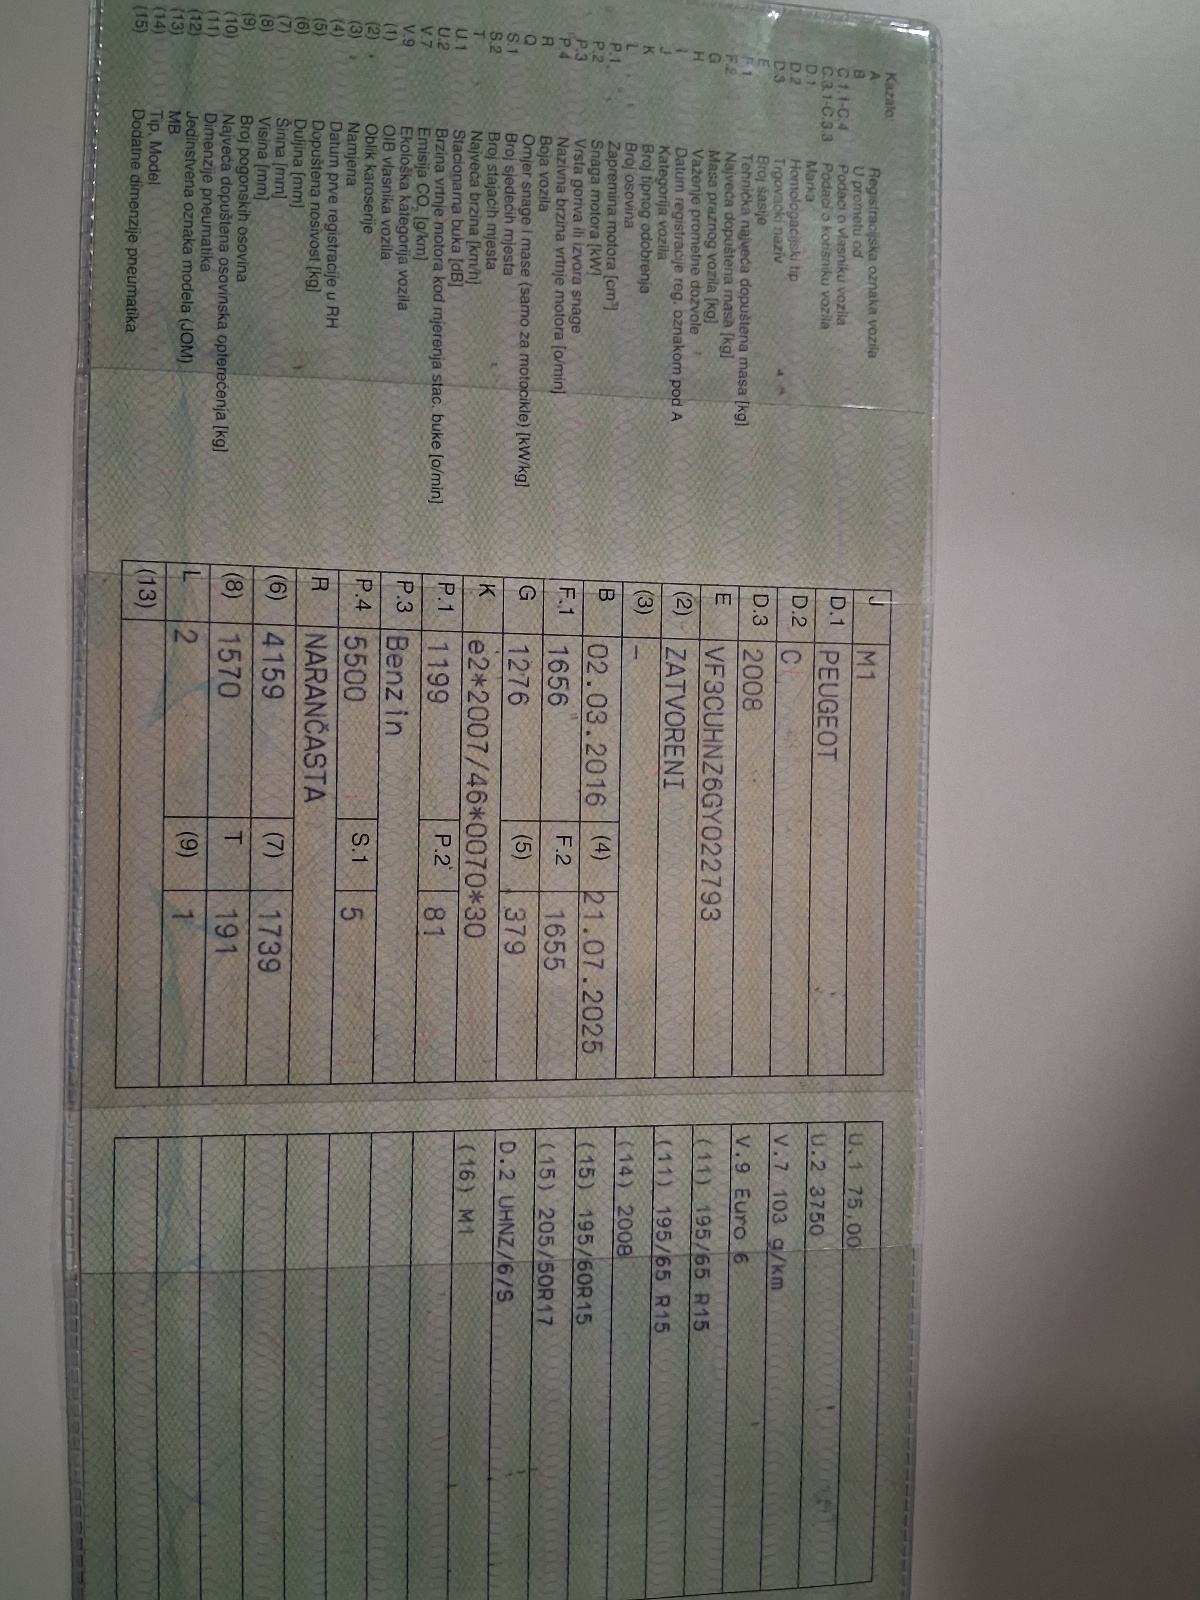 Kazalo:
A Registracijska oznaka vozila
B U prometu od
C.1.1-C.4 Podaci o vlasniku vozila
C.3.1-C.3.3 Podaci o korisniku vozila
D.1 Marka
D.2 Homologacijski tip
D.3 Trgovački naziv
E Broj šasije
F.1 Tehnička najveća dopuštena masa [kg]
F.2 Najveća dopuštena masa [kg]
G Masa praznog vozila [kg]
H Važenje prometne dozvole
I Datum registracije reg. oznakom pod A
J Kategorija vozila
K Broj tipnog odobrenja
L Broj osovina
P.1 Zapremina motora [cm³]
P.2 Snaga motora [kW]
P.3 Vrsta goriva ili izvora snage
P.4 Nazivna brzina vrtnje motora [o/min]
R Boja vozila
Q Omjer snage i mase (samo za motocikle) [kW/kg]
S.1 Broj sjedećih mjesta
S.2 Broj stajaćih mjesta
T Najveća brzina [km/h]
U.1 Stacionarna buka [dB]
U.2 Brzina vrtnje motora kod mjerenja stac. buke [o/min]
V.7 Emisija CO₂ [g/km]
V.9 Ekološka kategorija vozila
(1) OIB vlasnika vozila
(2) Oblik karoserije
(3) Namjena
(4) Datum prve registracije u RH
(5) Dopuštena nosivost [kg]
(6) Duljina [mm]
(7) Širina [mm]
(8) Visina [mm]
(9) Broj pogonskih osovina
(10) Najveća dopuštena osovinska opterećenja [kg]
(11) Dimenzije pneumatika
(12) Jedinstvena oznaka modela (JOM)
(13) MB
(14) Tip, Model
(15) Dodatne dimenzije pneumatika
J M1
D.1 PEUGEOT
D.2 C
D.3 2008
E VF3CUHNZ6GY022793
(2) ZATVORENI
(3) –
B 02.03.2016 (4) 21.07.2025
F.1 1656 F.2 1655
G 1276 (5) 379
K e2*2007/46*0070*30
P.1 1199 P.2 81
P.3 Benzin
P.4 5500 S.1 5
R NARANČASTA
(6) 4159 (7) 1739
(8) 1570 T 191
L 2 (9) 1
(13)
U.1 75,00
U.2 3750
V.7 103 g/km
V.9 Euro 6
(11) 195/65 R15
(11) 195/65 R15
(14) 2008
(15) 195/60R15
(15) 205/50R17
D.2 UHNZ/6/S
(16) M1